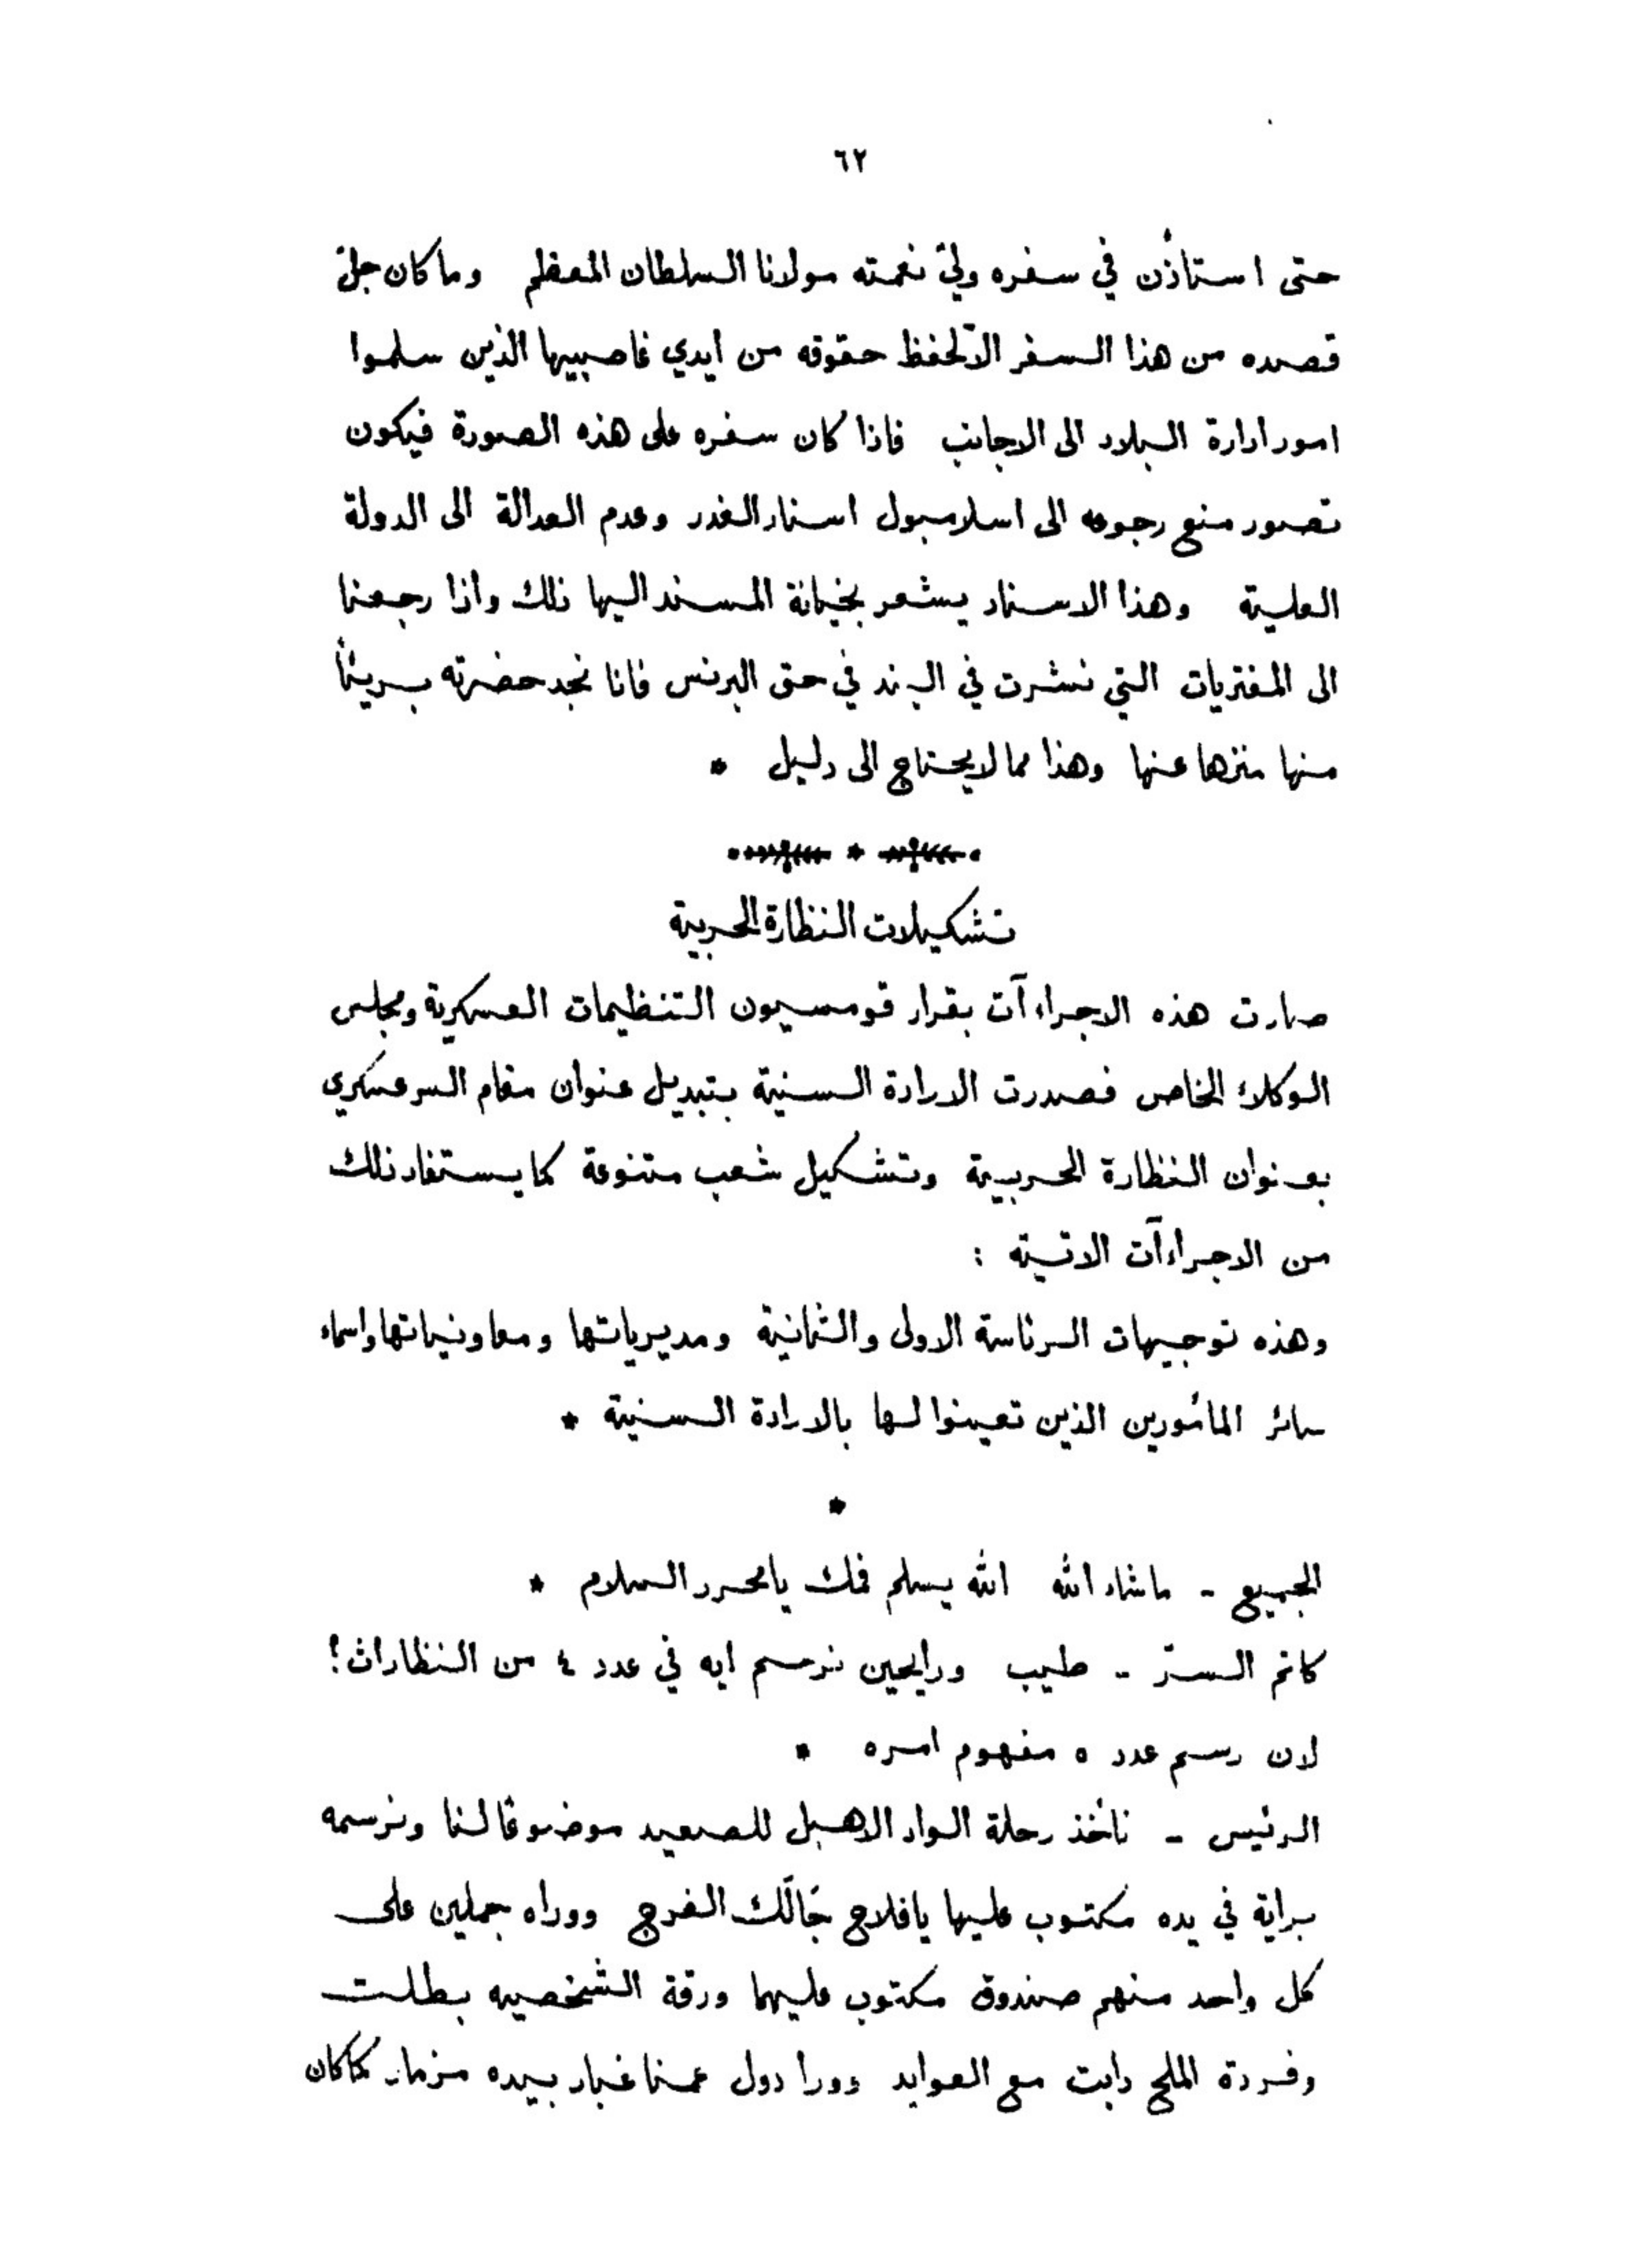 ٦٢
حتى استأذن في سفره وليّ نعمته مولانا السلطان المعظم وما كان جلّ
قصده من هذا السفر الّا لحفظ حقوقه من ايدي غاصبيها الذين سلموا
امور ادارة البلاد الى الاجانب فاذا كان سفره على هذه الصورة فيكون
تصور منع رجوعه الى اسلامبول اسناد الغدر وعدم العدالة الى الدولة
العليّة وهذا الاسناد يشعر بخيانة المسند اليها ذلك واذا رجعنا
الى المفتريات التي نشرت في البند في حق البرنس فانا نجد حضرته بريئاً
منها منزها عنها وهذا مما لا يحتاج الى دليل *
*
تشكيلات النظارة الحربية
صارت هذه الاجراءآت بقرار قومسيون التنظيمات العسكرية ومجلس
الوكلاء الخاص فصدرت الارادة السنية بتبديل عنوان مقام السرعسكري
بعنوان النظارة الحربية وتشكيل شعب متنوعة كما يستفاد ذلك
من الاجراءآت الاتية :
وهذه توجيهات الرئاسة الاولى والثانية ومديرياتها ومعاونياتها واسماء
سائر المأمورين الذين تعينوا لها بالارادة السنية *
*
الجميع - ماشاء الله الله يسلم فمك يا محرر السلام *
كاتم السرّ - طيب ورايحين نرسم ايه في عدد ٤ من النظارات؟
لان رسم عدد ٥ مفهوم امره *
الرئيس - نأخذ رحلة الواد الاهبل للصعيد موضوعًا لنا ونرسمه
براية في يده مكتوب عليها يا فلاح جَالَك الفرج ووراه جملين على
كل واحد منهم صندوق مكتوب عليهما ورقة الشخصيه بطلت
وفردة الملح دابت مع العوايد وورا دول عمنا غبار بيده مزمار كما كان